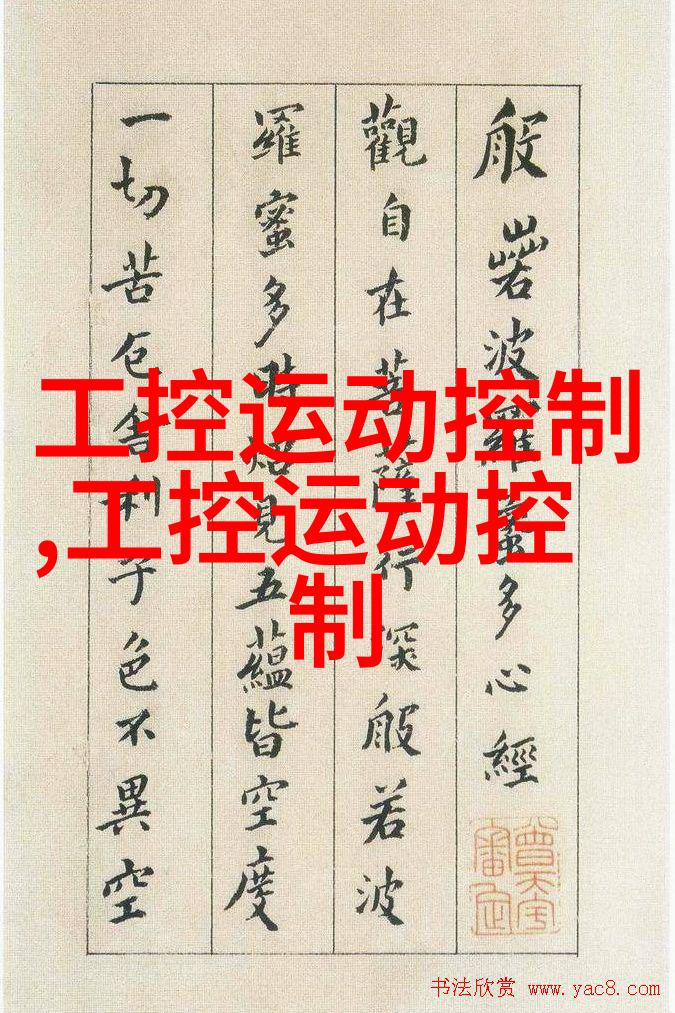 般若波羅蜜多心經
觀自在菩薩行深般若波
羅蜜多時照見五蘊皆空度
一切苦厄舍利子色不異空
工控运动控制
,工控运动控
制
书法欣赏 www.yac8.com